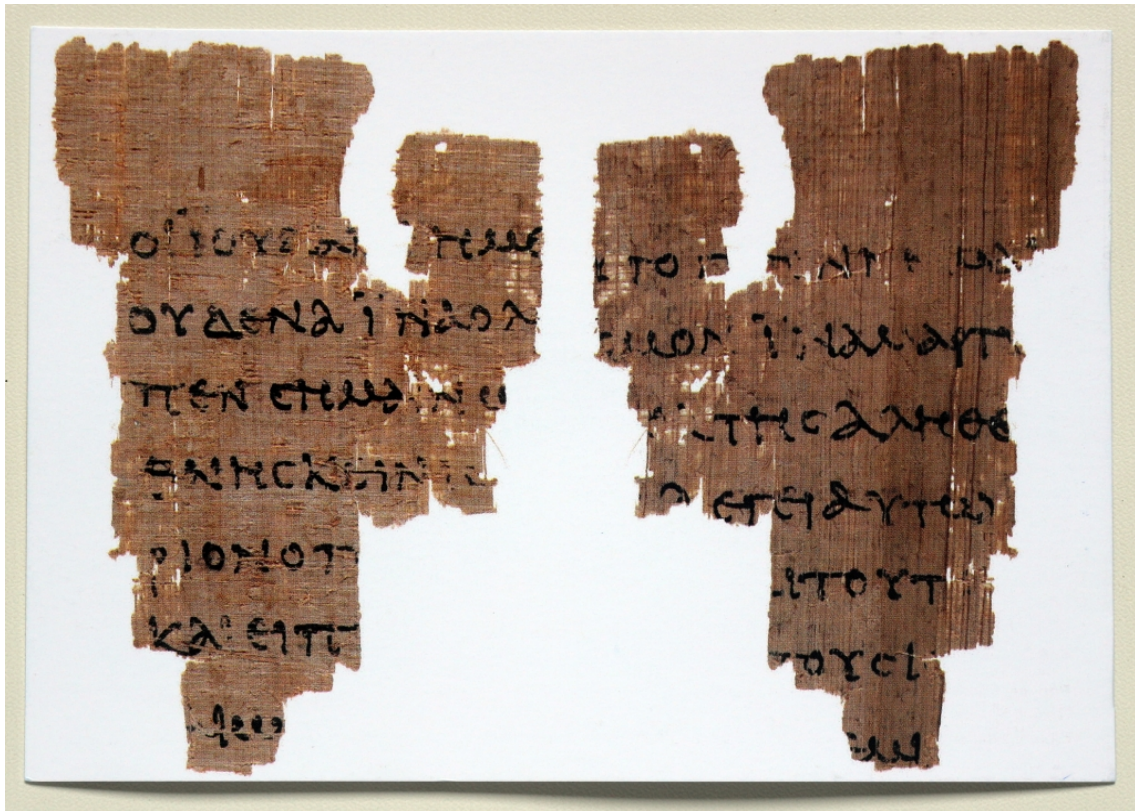 ΟΙ ΙΟΥΔΑΙ ΗΜΕ
ΟΥΔΕΝΑ ΪΝΑ Ο Λ
ΠΕΝ ϹΗΜΑΙΝΩ
ΘΝΗϹΚΕΙΝ
ΡΙΟΝ Ο Π
ΚΑΙ ΕΙΠ
ΑΙΩ
ΤΟ
ϹΜΟΝ ΪΝΑ ΜΑΡΤΥ
ΤΗϹ ΑΛΗΘΕ
ΛΕΓΕΙ ΑΥΤΩ
ΑΙ ΤΟΥΤ
ΤΟΥϹ Ι
ΕΜΙ